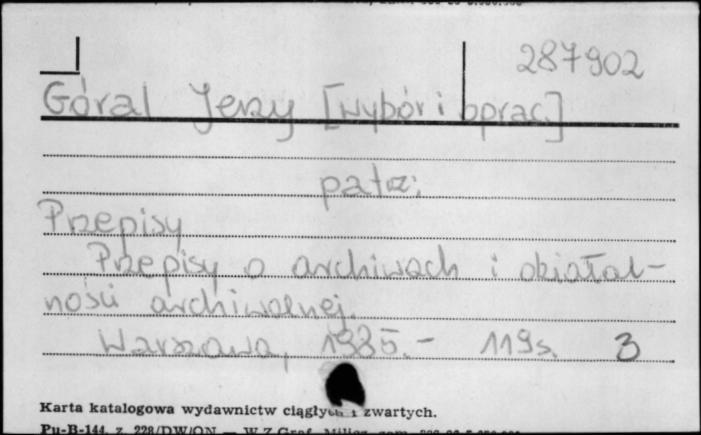 287902
Góral Jerzy [wybór i oprac.]
patrz:
Przepisy
Przepisy o archiwach i działal-
ności archiwalnej.
Warszawa, 1985.- 119s. 3
Karta katalogowa wydawnictw ciągłych i zwartych.
Pu-B-144, z. 228/DW/ON — W.Z.Graf.